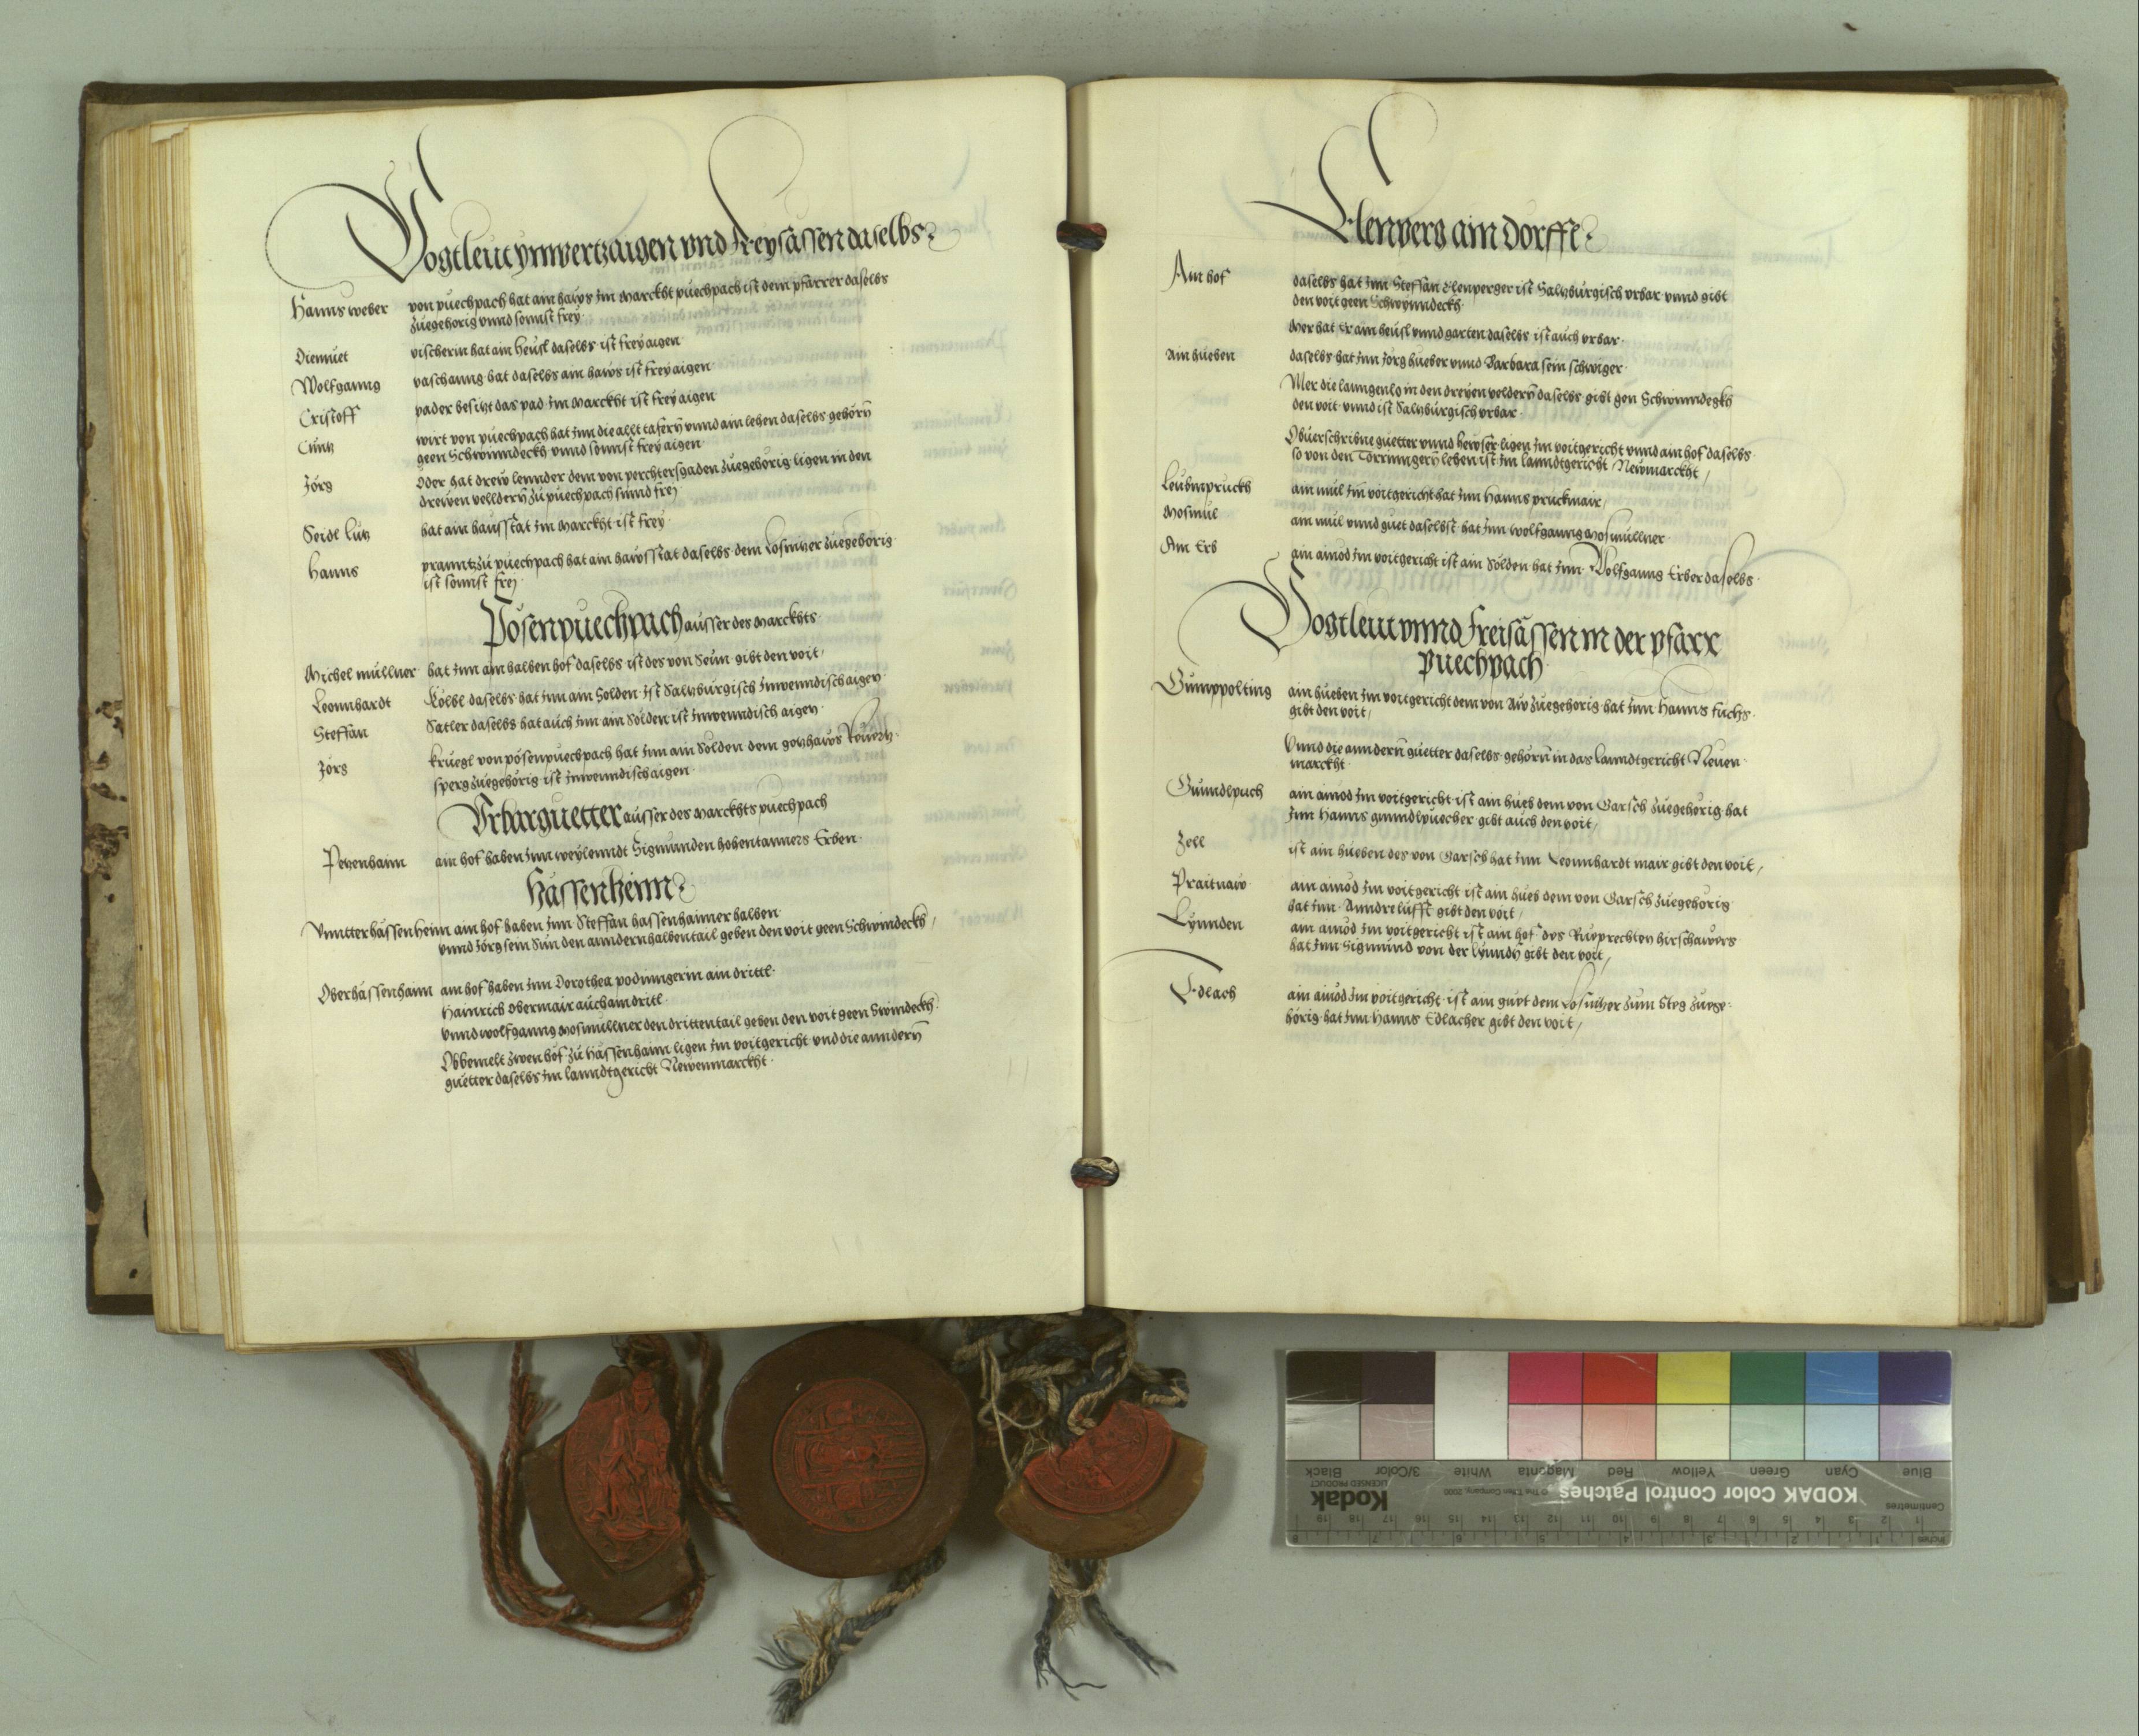 Vogtleut ynnwertzaigen vnd Freysässen daselbs
Hanns weber von puechpach hat ain haws Im Marckht puechpach ist dem pfarrer daselbs
zuegehorig vnnd sonnst frey
Diemuet vischerin hat ain heusl daselbs ist frey aigen
Wolfganng paschanng hat daselbs ain haws ist frey aigen
Cristoff pader besitzt das pad Im Marckht ist frey aigen
Cuntz wirt von puechpach hat Inn die allt tafern vnnd ain lehen daselbs gehörn
geen Schwynndeckh vnnd sonnst frey aigen
Jörg Oder hat drew lennder dem von perchtersgaden zuegehorig ligen in den
dreyen velldern zu puechpach sinnd frey
Seidl Lutz hat ain hausstat Im Marckht ist frey
Hanns pranntz zu puechpach hat ain hawsstat daselbs dem Losnitzer zuegehorig
ist sonnst frey
Pösenpuechpach ausser des Marckhts
Michel müllner hat Inn ain halben hof daselbs ist des von Seun gibt den voit
Leonnhardt Kölbl daselbs hat Inn ain Solden Ist Saltzburgisch Inwenndisch aigen
Steffan Satler daselbs hat auch Inn ain Sölden ist Inwenndisch aigen
Jörg kruegl von pösenpuechpach hat Inn ain Solden dem gotzhaws
sperg zuegehörig ist Inwenndisch aigen
Vrbarguetter ausser des Marckhts puechpach
Petzenhaim ain hof haben Inn weylenndt Sigmunden hohentanners Erben
Hässenheim
Vnntterhässenheim ain hof haben Inn Steffan hassenhaimer halben
vnnd Jörg sein Sun den anndern halben tail geben den voit geen Schwindeckh
Oberhässenhaim ain hof haben Inn Dorothea podmngerin ain drittl
Hainrich Obermair auch ain dritl
vnnd wolfganng Mosmüllner den dritten tail geben den voit geen Swindeckh
Obbemelt zwen hof zu hässenhaim ligen Im voitgericht vnd die anndern
guetter daselbs Im lanndtgericht Newenmarckht
Elenperg ain dorffe
Ain hof daselbs hat Inn Steffan Elenperger ist Saltzburgisch vrbar vnnd gibt
den voit geen Schwynndeckh
Mer hat Er ain heusl vnnd garten daselbs ist auch vrbar
Ain hueben daselbs hat Inn Jörg hueber vnnd Barbara sein schwiger
Mer die lanngenlo in den dreyen veldern daselbs gibt gen Schwinndegkh
den voit vnnd ist Saltzburgisch vrbar
Obuerschribne guetter vnnd hewser ligen Im voitgericht vnnd ain hof daselbs
so von den Törringern lehen ist Im lanndtgericht Newmarckht
Leubmpruckh ain mül Im voitgericht hat Inn Hanns pruckmair
Mosmül ain mül vnnd guet daselbst hat Inn wolfganng Mosmüllner
Am Erb ain ainöd Im voitgericht ist ain Sölden hat Inn Wolfganng Erber daselbs
Vogtleut vnnd Freisässen in der pfarr
puechpach
Gumppolting ain hueben Im voitgericht dem von Aw zuegehorig hat Inn Hanns fuchs
gibt den voit
Vnnd die anndern guetter daselbs gehörn in das lanndtgericht Neuen
marckht
Gumdlpuch ain ainöd Im voitgericht ist ain hueb dem von Garsch zuegehörig hat
Inn Hanns gumdlpuecher gibt auch den voit
Zell ist ain hueben des von Garsch hat Inn Leonnhardt mair gibt den voit
Praitnaw ain ainöd Im voitgericht ist ain hueb dem von Garsch zuegehörig
hat Inn Anndre lufft gibt den voit
Lynnden ain ainöd Im voitgericht ist ain hof des Rupprechten hirschawers
hat Inn Sigmund von der lynndn gibt den voit
Edlach ain ainöd Im voitgericht ist ain guet dem Losnitzer zum Steg zuege
hörig hat Inn Hanns Edlacher gibt den voit
Blue Cyan Green Yellow Red Magenta White 3/Color Black
KODAK Color Control Patches
Kodak
LICENSED PRODUCT
© The Tiffen Company, 2000
Centimetres
1 2 3 4 5 6 7 8 9 10 11 12 13 14 15 16 17 18 19
Inches